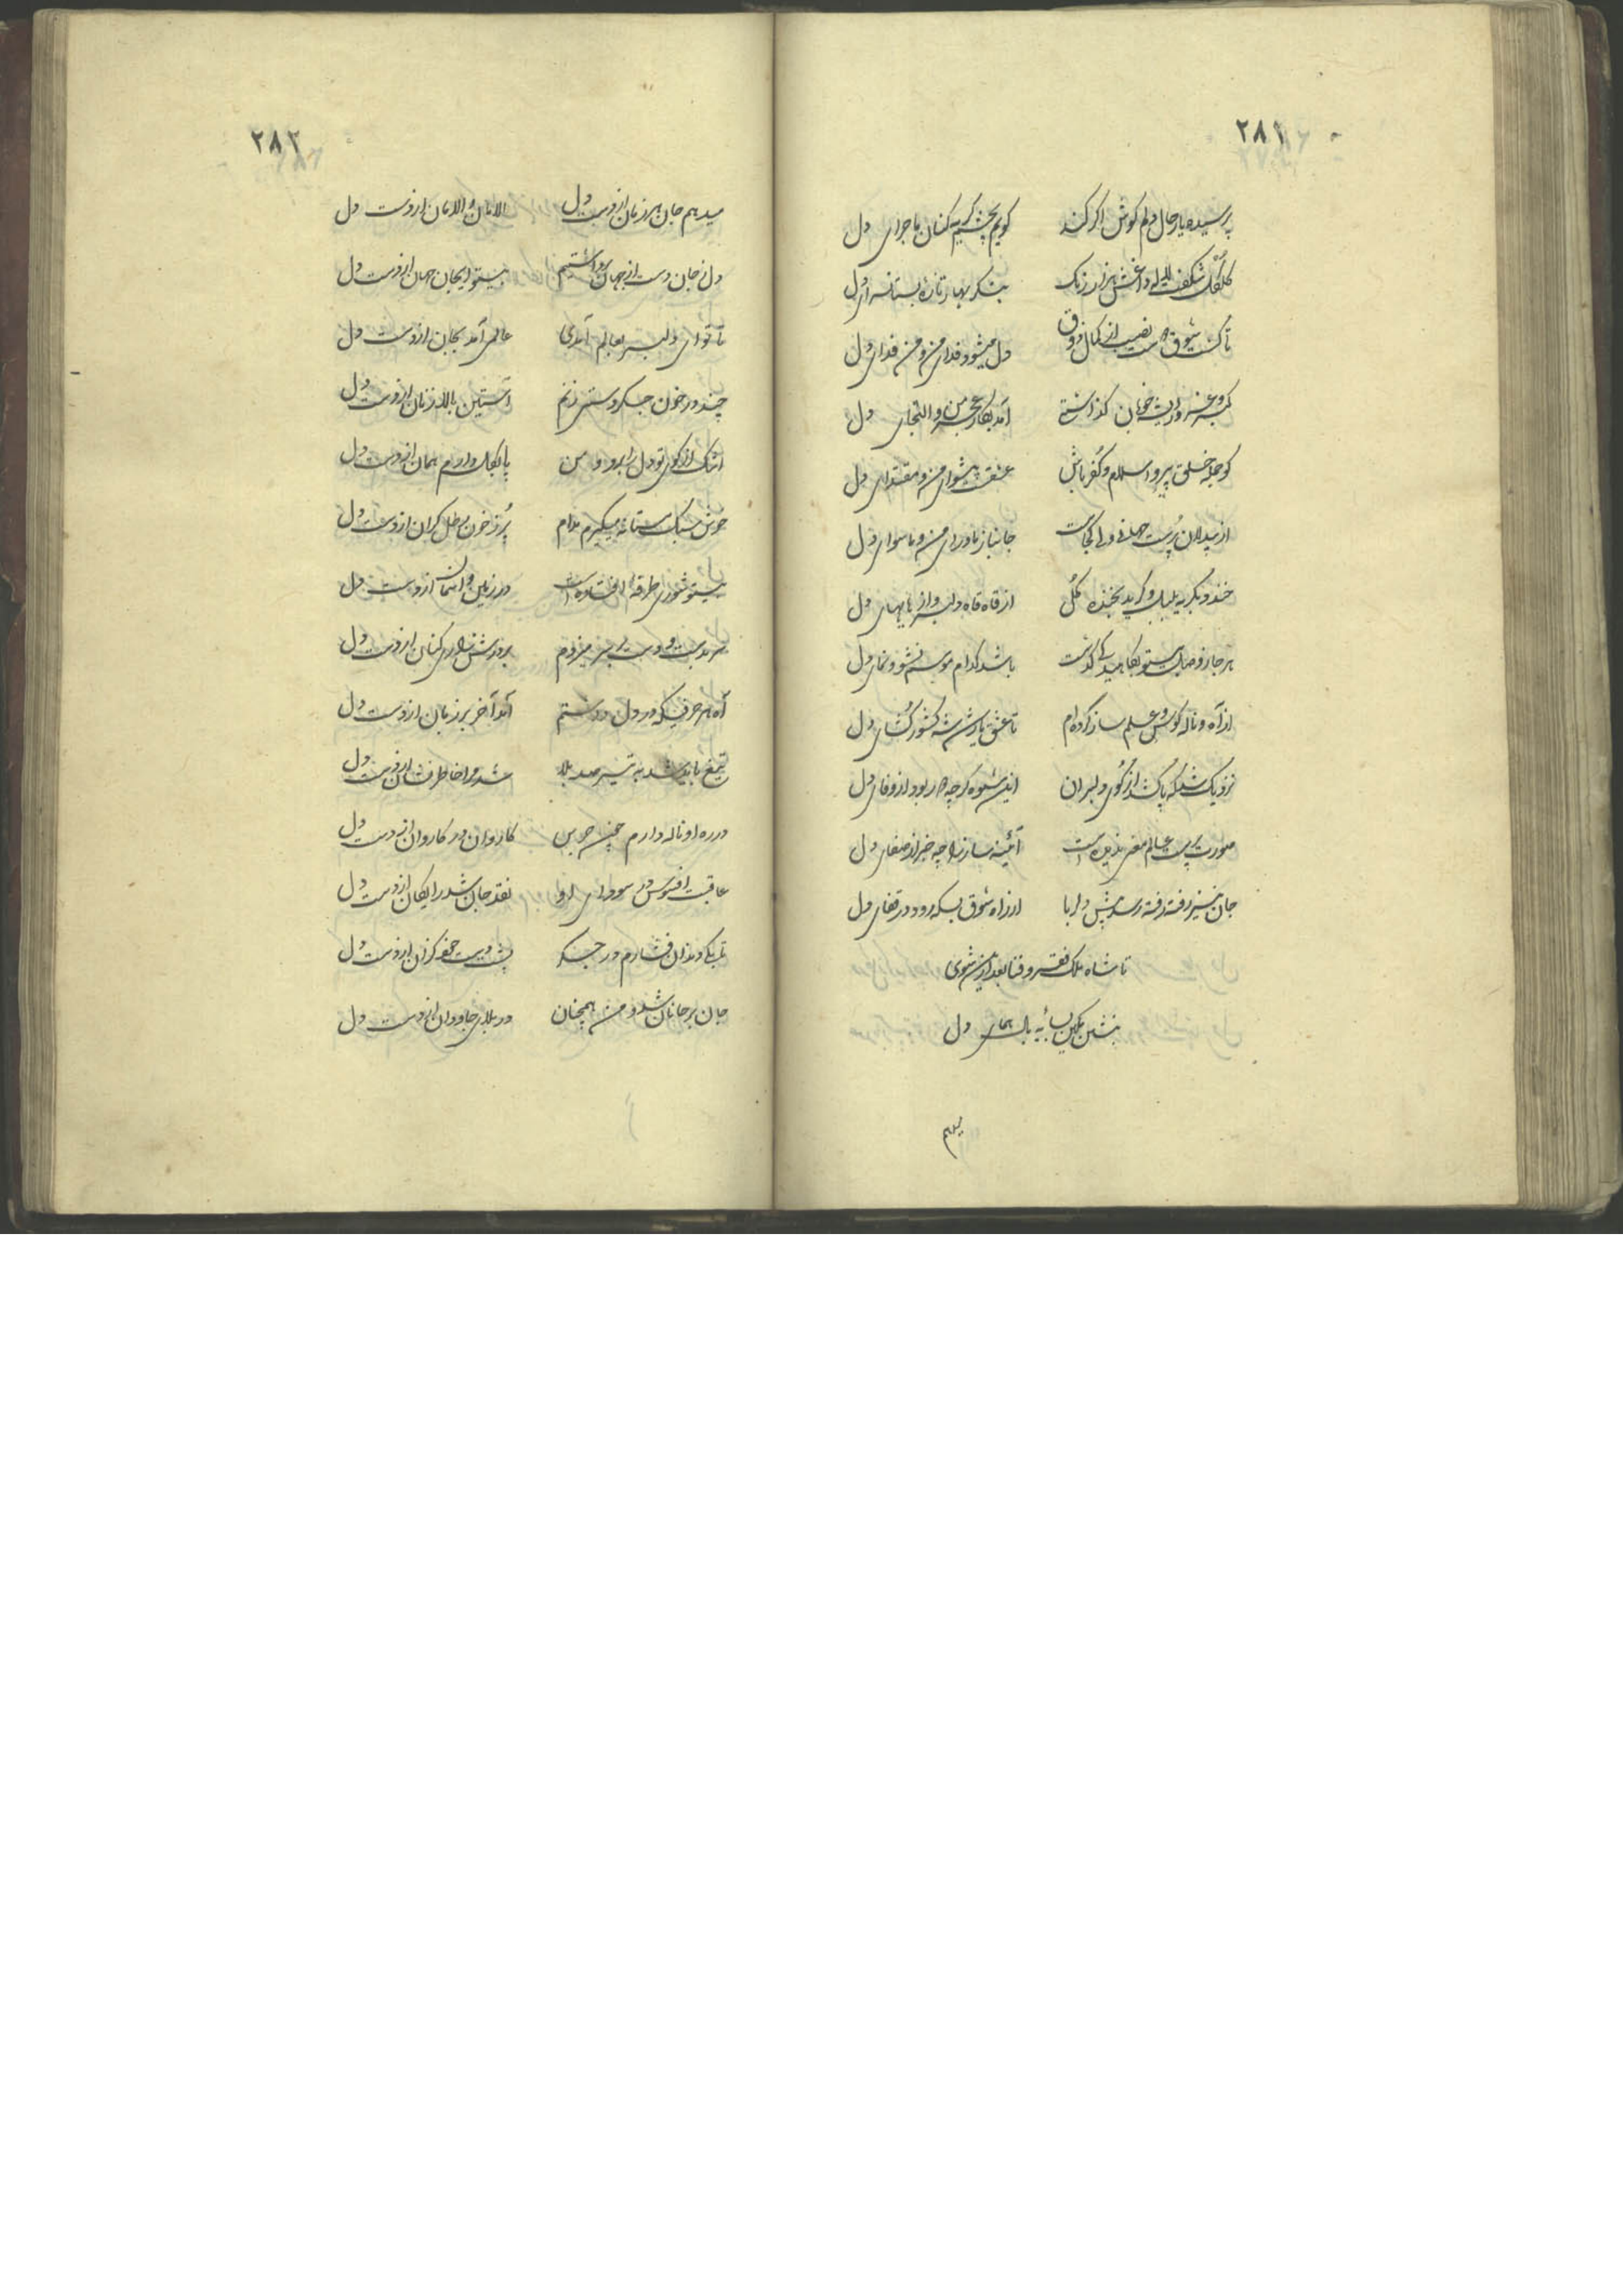 ۲۸۱
پرسیده یار حال دلم گوش اگر کند گویم بچشم گریه کنان ماجرای دل
گلگل شکفت لاله داغش هزار رنگ بنگر بهار تازه بستانسرای دل
تا گشت شوق نصیب از کمال ذوق دل میشود فدای من و من فدای دل
کبر و غرور خوبان گذاشتی آمد بکار عجز من و التجای دل
گو جمله خلق پیرو اسلام و کفر باش عشقت پیشوای من و مقتدای دل
از بیدلان پرست جهان دلبر کجاست جانباز ماورای من و ماسوای دل
خندد بگریه بلبل و گرید بخنده گل از قاه قاه دلبر و از هایهای دل
هر چار فصل بیتو بکاهیدگی گذشت باشد کدام موسم نشو و نمای دل
از آه و ناله کوس و علم ساز کرده‌ام تا عشق یار شد شه کشور گشای دل
نزدیک شد که پا کشد از کوی دلبران این شیوه گرچه دور بود از وفای دل
صورت پرست عالم معنی ندیده است آئینه ساز را چه خبر از صفای دل
جان نیز رفته رفته رسد پیش دلربا از راه شوق بسکه رود در قفای دل
تا شاه ملک فقر و فنا بعد ازین شوی
بنشین مکین بسایه بال همای دل
۲۸۲
میدهم جان هر زمان از دست دل الامان و الامان از دست دل
دل ز جان دست از جهان برداشتیم بیتو ایجان جهان از دست دل
تا تو ای دلبر بعالم آمدی عالمی آمد بجان از دست دل
چند در خون جگر دستی زنم آستین بالا زنان از دست دل
اشک از کوی تو دل را برد و من پا بگل دارم همان از دست دل
خوش سبک مستانه میگیرم مدام پر ز خون رطل گران از دست دل
بیتو شوری طرفه افتاده است در زمین و آسمان از دست دل
سر بدست و دست بر سر میزدم بر درش زاری کنان از دست دل
آه هر حرفیکه در دل داشتم آمد آخر بر زبان از دست دل
تیغ باید شد به تیر صد بلا شد مرا خاطر نشان از دست دل
در ره او ناله دارم چون جرس کاروان در کاروان از دست دل
عاقبت افسوس در سودای او نقد جان شد رایگان از دست دل
تا بکی دندان فشارم در جگر پشت دست خود گزان از دست دل
جان بر جانان شد و من همچنان در بلای جاودان از دست دل